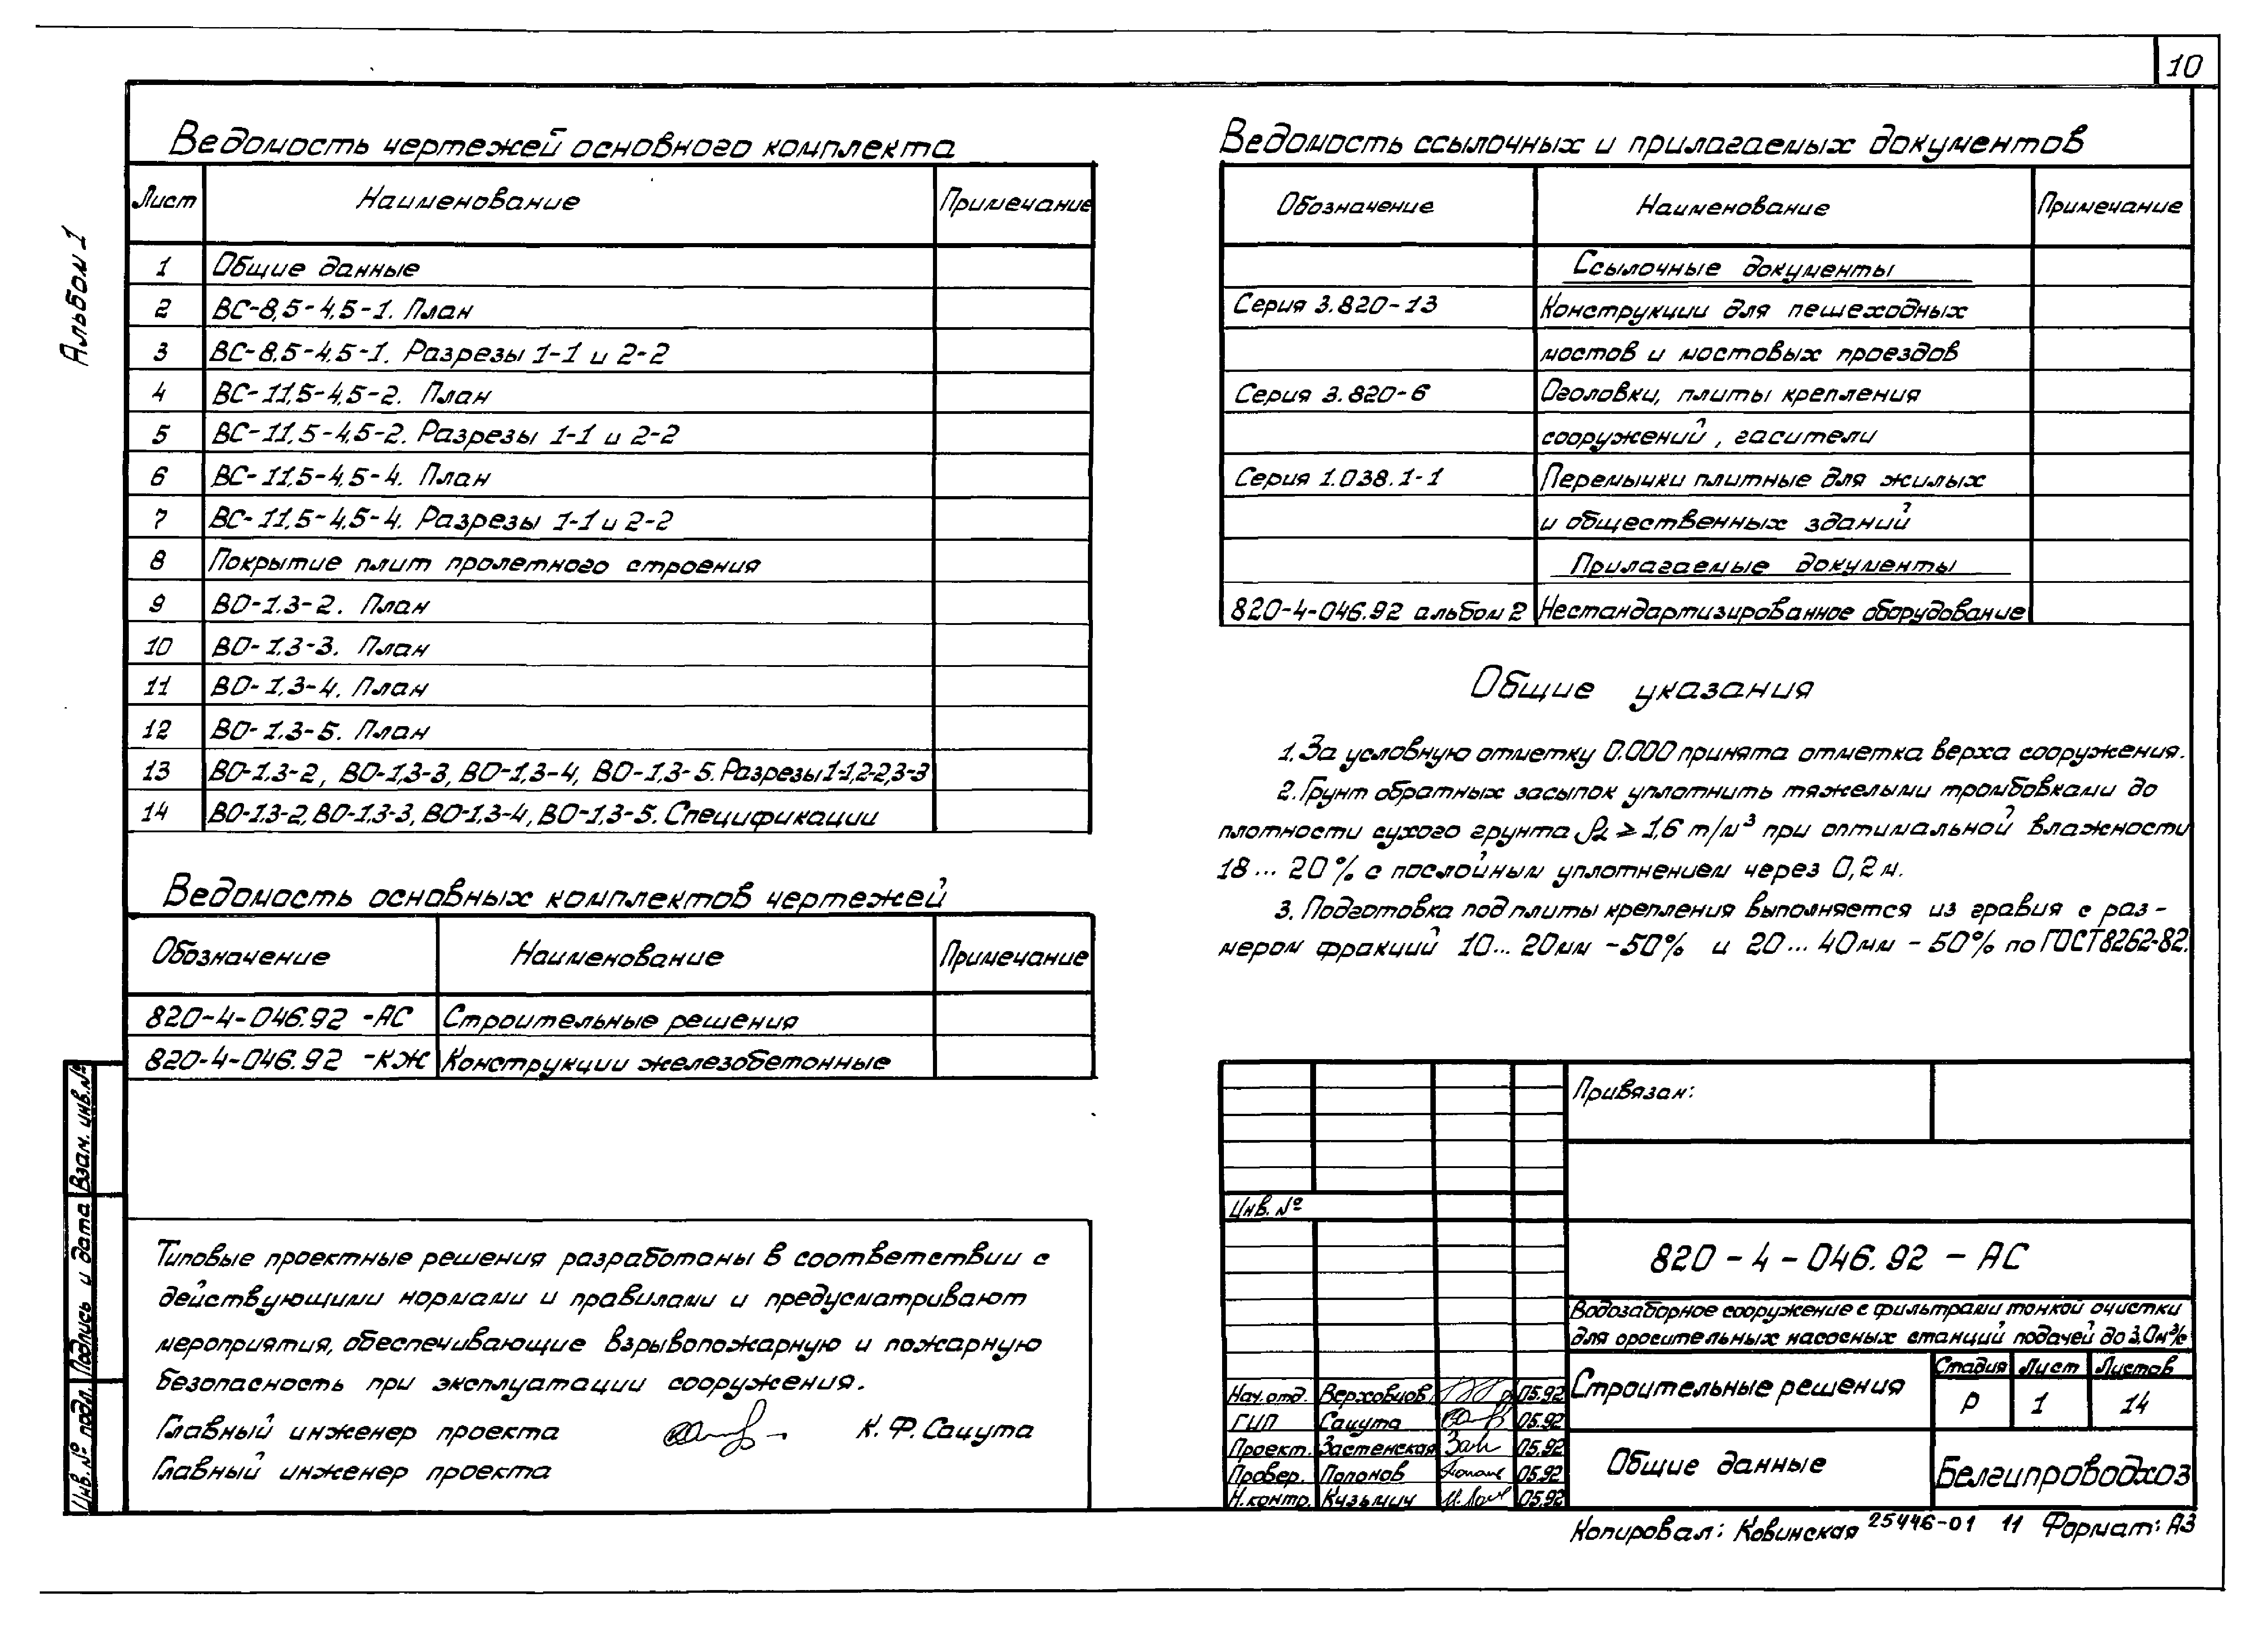 10
Альбом 1
Ведомость чертежей основного комплекта
Лист Наименование Примечание
1 Общие данные
2 ВС-8,5-4,5-1. План
3 ВС-8,5-4,5-1. Разрезы 1-1 и 2-2
4 ВС-11,5-4,5-2. План
5 ВС-11,5-4,5-2. Разрезы 1-1 и 2-2
6 ВС-11,5-4,5-4. План
7 ВС-11,5-4,5-4. Разрезы 1-1 и 2-2
8 Покрытие плит пролетного строения
9 ВО-1,3-2. План
10 ВО-1,3-3. План
11 ВО-1,3-4. План
12 ВО-1,3-5. План
13 ВО-1,3-2, ВО-1,3-3, ВО-1,3-4, ВО-1,3-5. Разрезы 1-1, 2-2, 3-3
14 ВО-1,3-2, ВО-1,3-3, ВО-1,3-4, ВО-1,3-5. Спецификации
Ведомость основных комплектов чертежей
Обозначение Наименование Примечание
820-4-046.92 -АС Строительные решения
820-4-046.92 -КЖ Конструкции железобетонные
Типовые проектные решения разработаны в соответствии с
действующими нормами и правилами и предусматривают
мероприятия, обеспечивающие взрывопожарную и пожарную
безопасность при эксплуатации сооружения.
Главный инженер проекта К. Ф. Сацута
Главный инженер проекта
Взам. инв. №
Подпись и дата
Инв. № подл.
Ведомость ссылочных и прилагаемых документов
Обозначение Наименование Примечание
Ссылочные документы
Серия 3.820-13 Конструкции для пешеходных
мостов и мостовых проездов
Серия 3.820-6 Оголовки, плиты крепления
сооружений, гасители
Серия 1.038.1-1 Перемычки плитные для жилых
и общественных зданий
Прилагаемые документы
820-4-046.92 альбом 2 Нестандартизированное оборудование
Общие указания
1. За условную отметку 0.000 принята отметка верха сооружения.
2. Грунт обратных засыпок уплотнить тяжелыми трамбовками до
плотности сухого грунта ρd ≥ 1,6 т/м³ при оптимальной влажности
18 ... 20 % с послойным уплотнением через 0,2 м.
3. Подготовка под плиты крепления выполняется из гравия с раз-
мером фракций 10... 20мм - 50% и 20 ... 40мм - 50% по ГОСТ 8262-82.
Привязан:
Инв. №
820 - 4 - 046.92 - АС
Водозаборное сооружение с фильтрами тонкой очистки
для оросительных насосных станций подачей до 3,0м³/с
Нач. отд. Верховцов 05.92
ГИП Сацута 05.92
Проект. Застенская 05.92
Провер. Попонов 05.92
Н. контр. Кузьмич 05.92
Строительные решения
Стадия Лист Листов
Р 1 14
Общие данные
Белгипроводхоз
Копировал: Ковинская 25446-01 11 Формат: А3